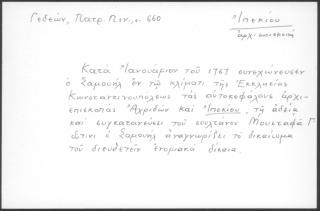 Γεδεών, Πατρ. Πιν., σ. 660
Ἰπεκίου
ἀρχιεπισκοπή
Κατά Ἰανουάριον τοῦ 1767 συνεχώνευσεν
ὁ Σαμουήλ ἐν τῷ κλίματι τῆς Ἐκκλησίας
Κωνσταντινουπόλεως τάς αὐτοκεφάλους ἀρχι-
επισκοπάς Ἀχριδῶν καί Ἰπεκίου, τῇ ἀδείᾳ
καί συγκατανεύσει τοῦ σουλτάνου Μουσταφᾶ Γ΄
ὁ Σαμουήλ ἀναγνωρίζει τό δικαίωμα
τοῦ διευθετεῖν ἐνοριακά δίκαια.